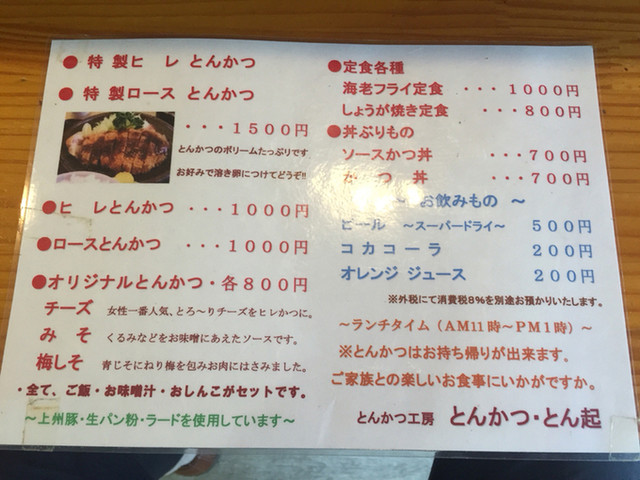 ● 特製ヒレとんかつ
● 特製ロースとんかつ
・・・１５００円
とんかつのボリームたっぷりです
お好みで溶き卵につけてどうぞ!!
●ヒレとんかつ ・・・１０００円
●ロースとんかつ ・・・１０００円
●オリジナルとんかつ・各８００円
チーズ 女性一番人気、とろ～りチーズをヒレかつに。
みそ くるみなどをお味噌にあえたソースです。
梅しそ 青じそにねり梅を包みお肉にはさみました。
・全て、ご飯・お味噌汁・おしんこがセットです。
～上州豚・生パン粉・ラードを使用しています～
●定食各種
海老フライ定食 ・・・１０００円
しょうが焼き定食 ・・・８００円
●丼ぶりもの
ソースかつ丼 ・・・７００円
かつ丼 ・・・７００円
～ お飲みもの ～
ビール ～スーパードライ～ ５００円
コカコーラ ２００円
オレンジ ジュース ２００円
※外税にて消費税8%を別途お預かりいたします。
～ランチタイム（AM11時～PM1時）～
※とんかつはお持ち帰りが出来ます。
ご家族との楽しいお食事にいかがですか。
とんかつ工房 とんかつ・とん起